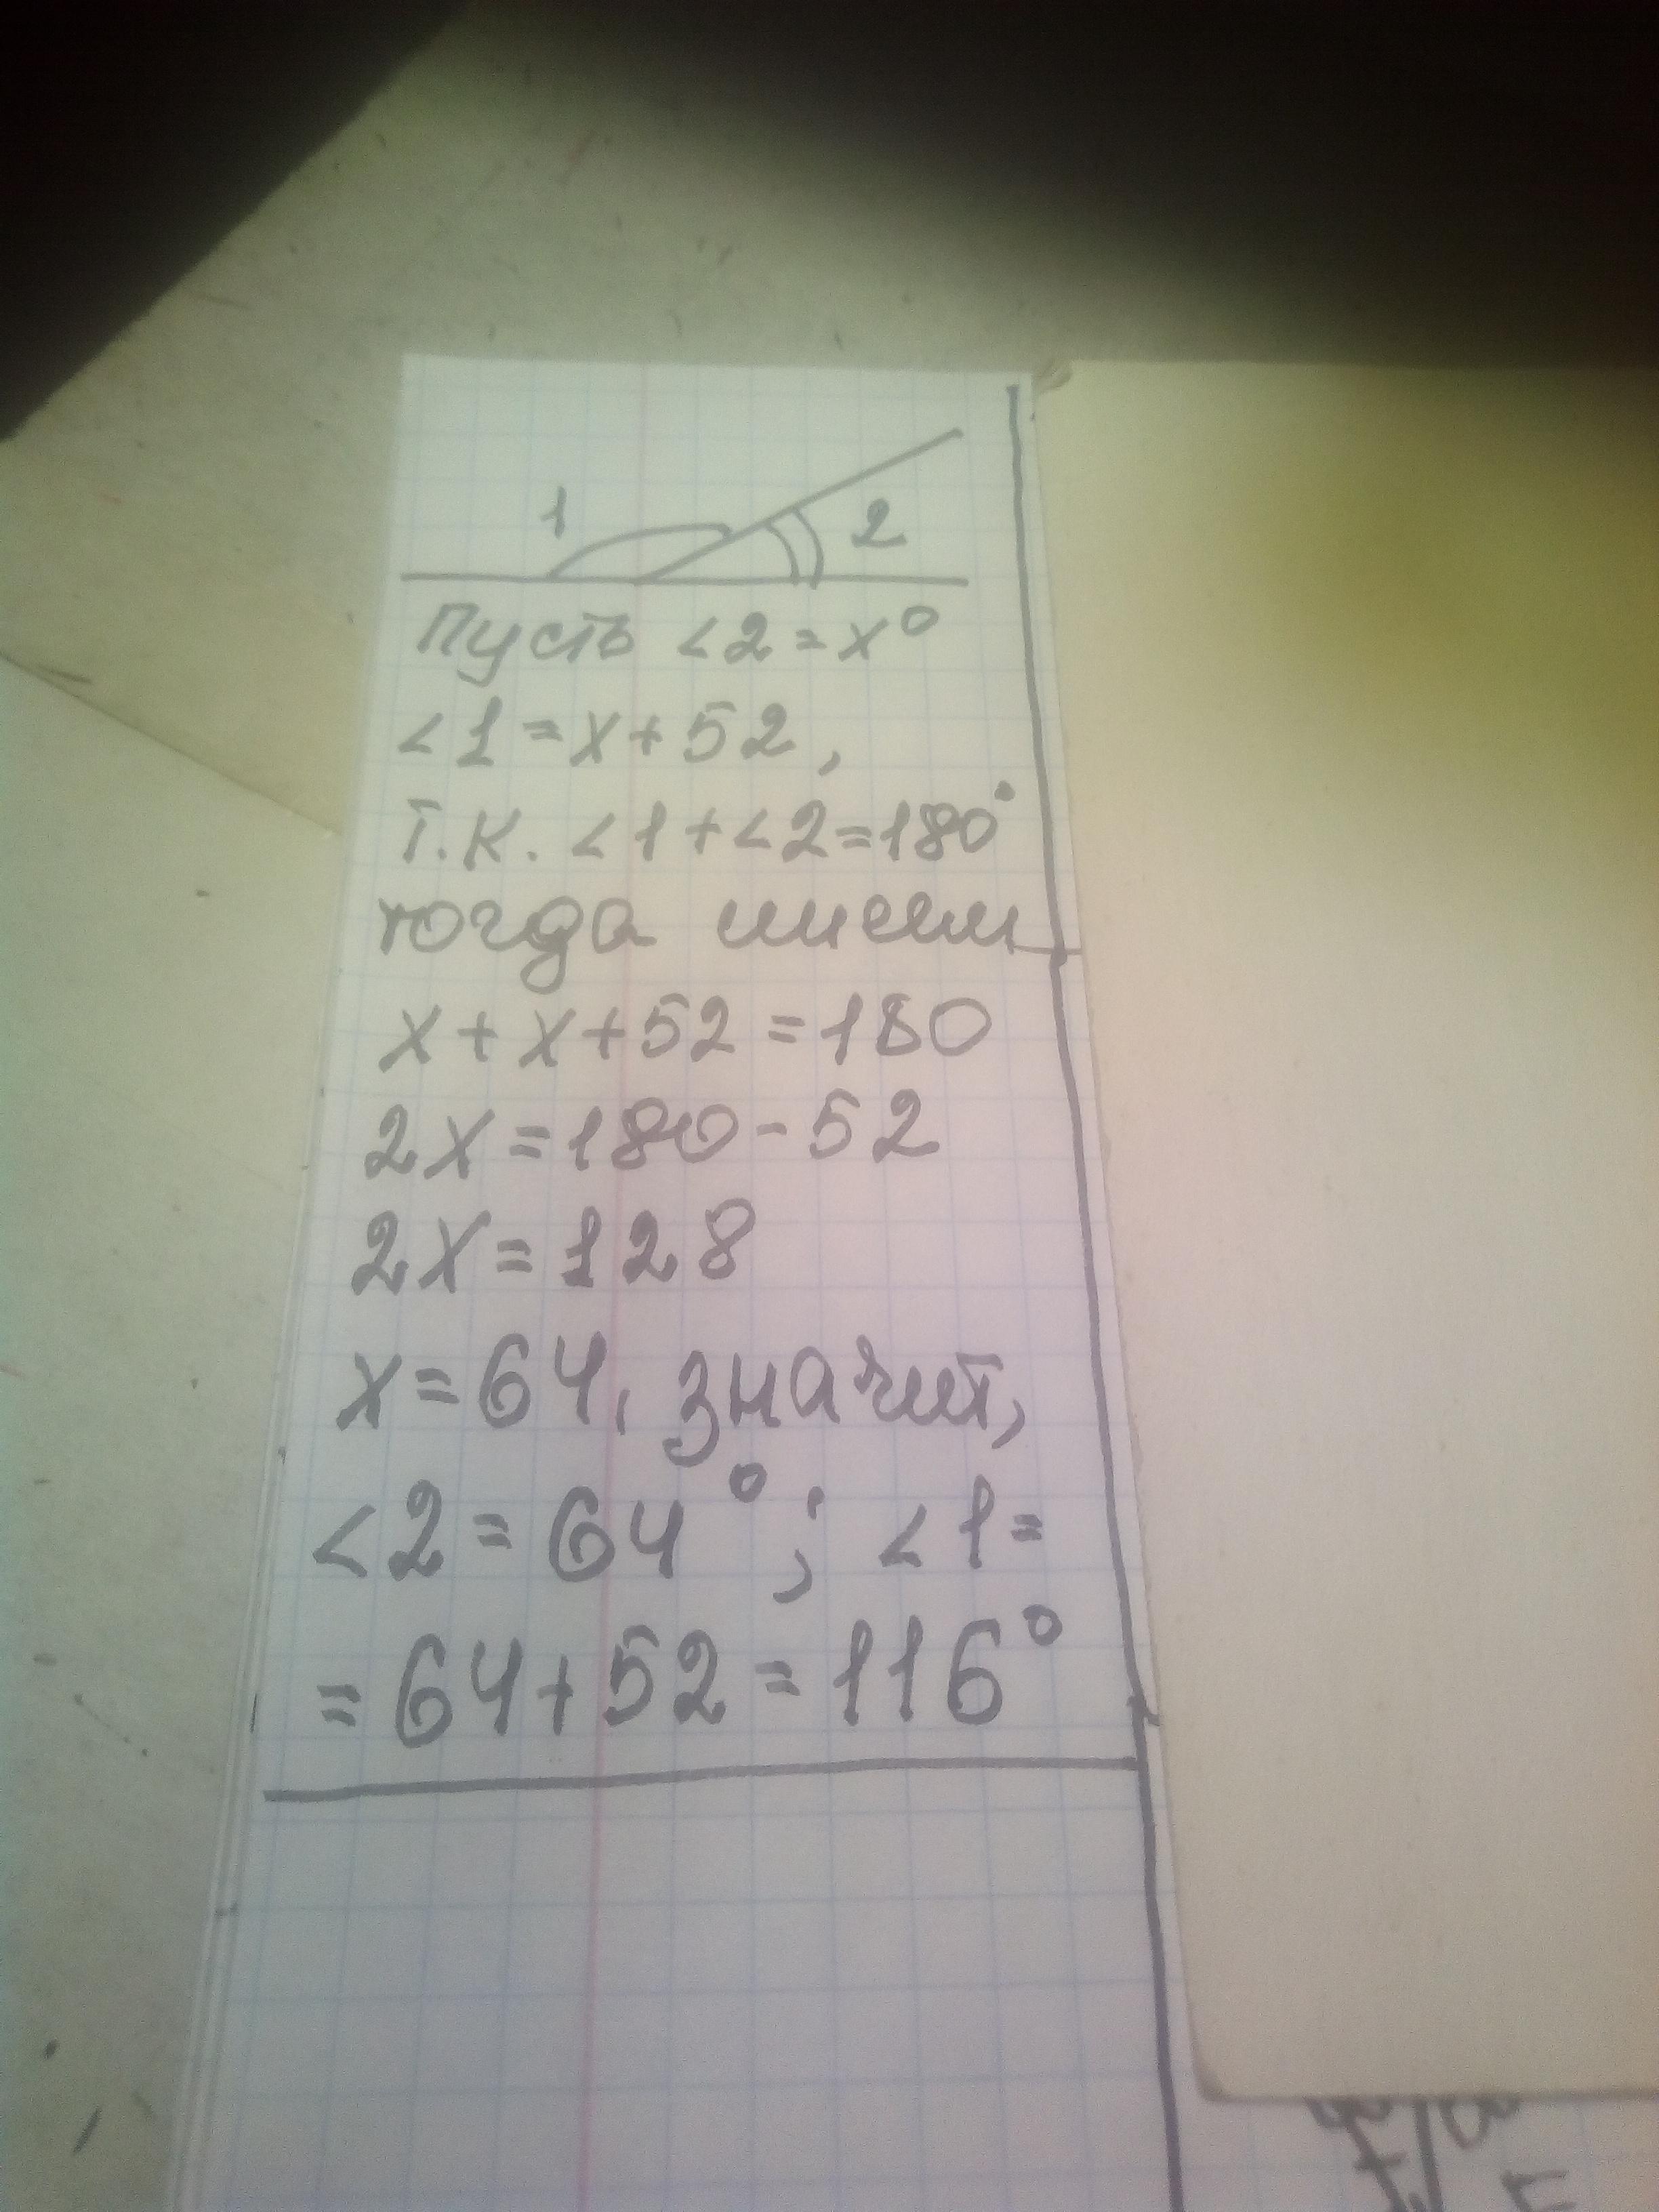 1
2
Пусть <2=x°
<1=x+52,
т.к. <1+<2=180°
тогда имеем
x+x+52=180
2x=180-52
2x=128
x=64, значит,
<2=64°; <1=
=64+52=116°